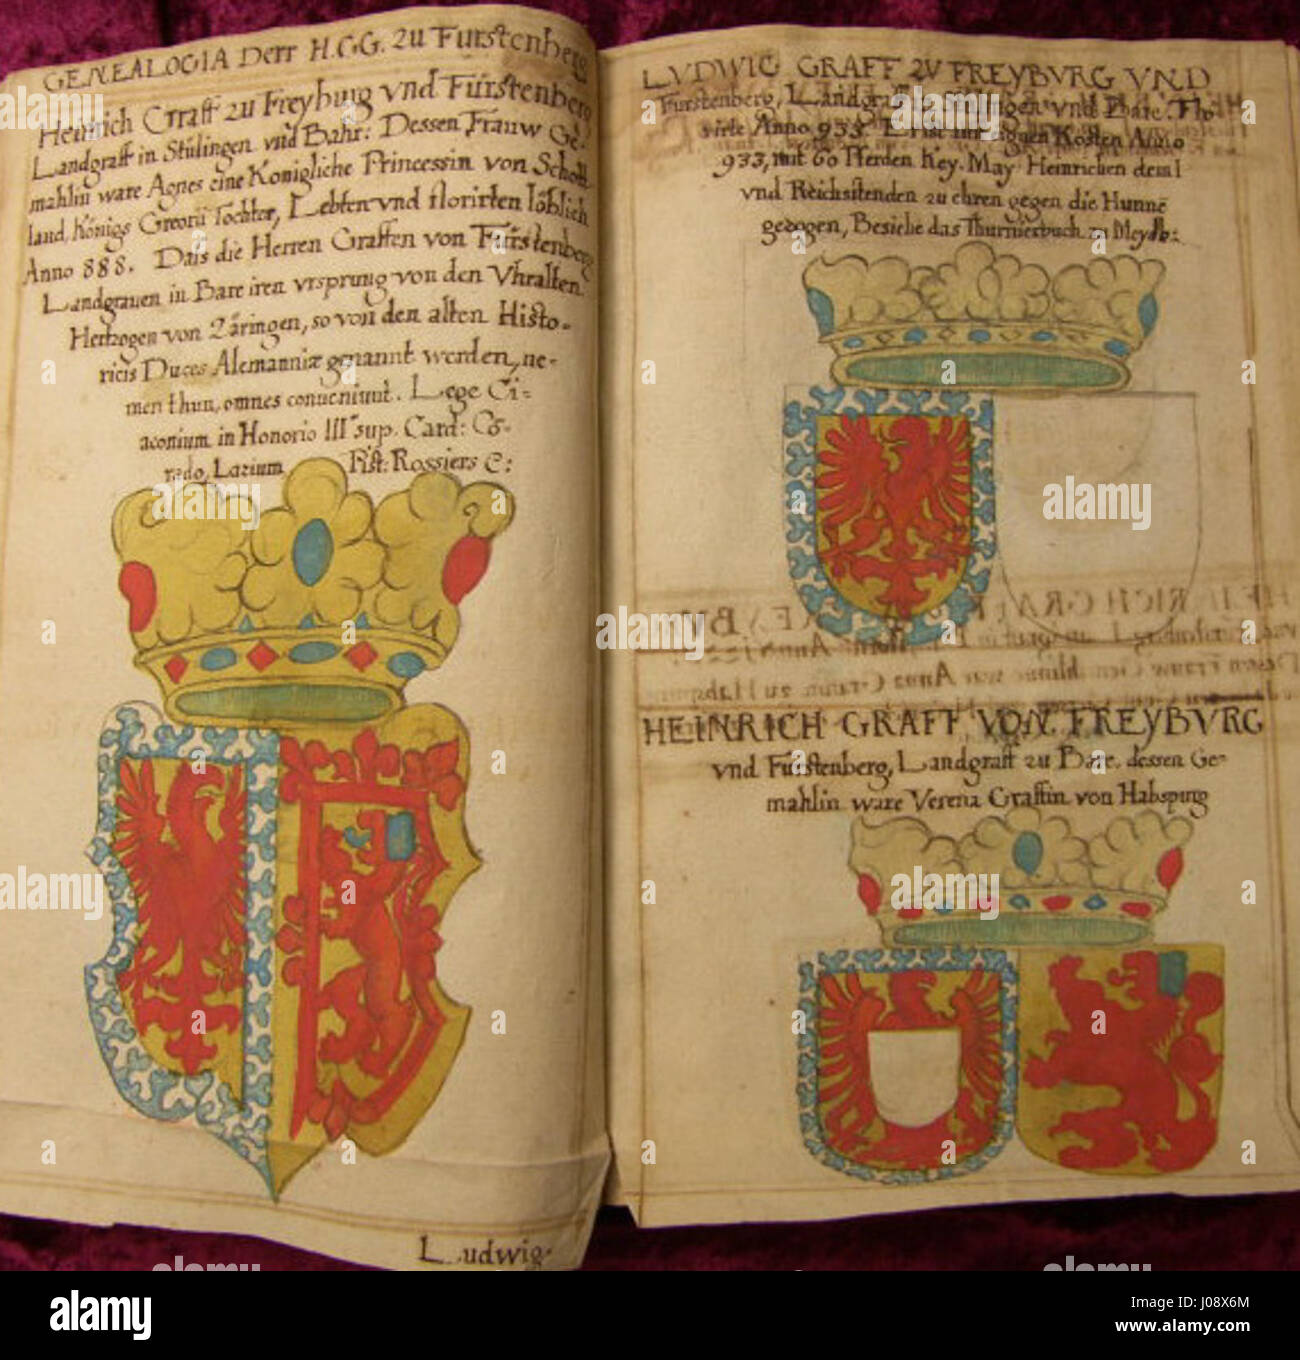 GENEALOGIA Derr H.G.G. zu Furstenberg
Heinrich Graff zu Freyburg vnd Fürstenberg
Landgraff in Stülingen vnd Bahr: Dessen Frauw Ge-
mahlin ware Agnes eine Königliche Princessin von Schott
land, Königs Tochter, Lebten vnd florirten löblich
Anno 888. Dass die Herren Graffen von Fürstenberg
Landgrauen in Bare iren vrsprung von den Vhralten
Hertzogen von Zäringen, so von den alten Histo-
ricis Duces Alemanniæ genannt werden, ne-
men thun, omnes conueniunt. Lege Ci-
aconium in Honorio III sup. Card: Co-
rado, Lazium Pist: Rossiers &:
Ludwig.
LVDWIG GRAFF ZV FREYBVRG VND
Furstenberg, Landgraff zu Stülingen vnd Bare. Thu-
Anno 935. Er ist eignen Kosten Anno
933, mit 60 Pferden Key. May. Heinrichen dem I
vnd Reichsstenden zu ehren gegen die Hunnē
gezogen, Besiehe das Thurnierbuch zu Meydb:
HEINRICH GRAFF VON FREYBVRG
vnd Fürstenberg, Landgraff zu Bare. dessen Ge-
mahlin ware Verena Graffin von Habspurg
alamy
J08X6M
www.alamy.com